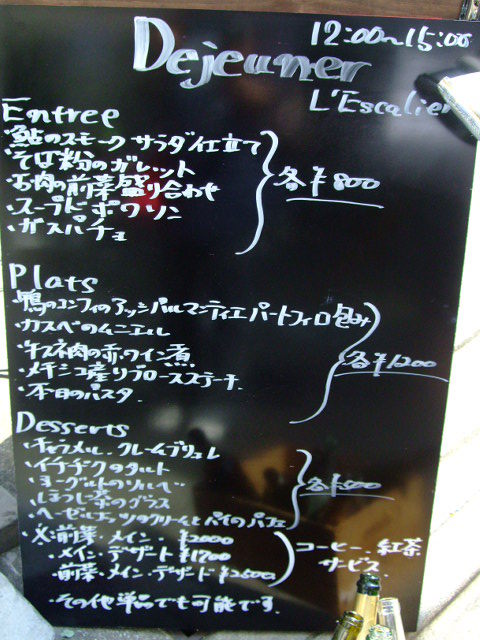 Dejeuner
12:00~15:00
L'Escalier
Entree
・鮎のスモーク サラダ仕立て
・そば粉のガレット
・お肉の前菜盛り合わせ
・スープドポワソン
・ガスパチョ
各¥800
Plats
・鴨のコンフィのアッシパルマンティエ パートフィロ包み
・カスベのムニエル
・牛スネ肉の赤ワイン煮
・メキシコ産リブロースステーキ
・本日のパスタ
各¥1200
Desserts
・キャラメル・クレームブリュレ
・イチヂクのタルト
・ヨーグルトのソルベ
・ほうじ茶のグラス
・ヘーゼルナッツのクリームとパイのパフェ
各¥500
・※前菜・メイン・¥2000
・メイン・デザート ¥1700
前菜・メイン・デザート ¥2500
コーヒー、紅茶
サービス
・その他単品でも可能です。